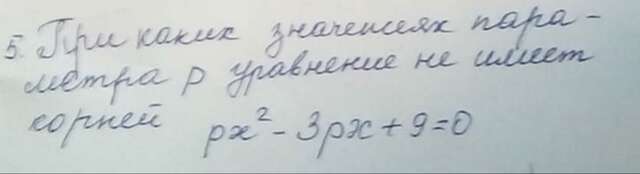 5. При каких значениях пара-
метра p уравнение не имеет
корней px² - 3px + 9 = 0